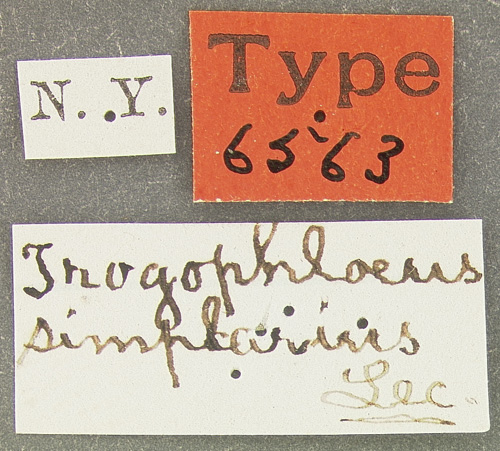 N. Y.
Type
6563
Trogophloeus
simplarius
Lec.